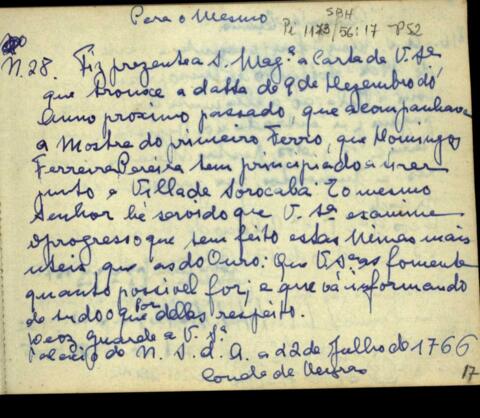 Para o Mesmo
SBH
Pi 1173/56:17 P52
N.28. Fiz prezente a S. Mag.ᵉ a Carta de V. Sª
que trouce a datta de 9 de Dezembro do
Anno proximo passado, que acompanhava
a Mostra do primeiro Ferro, que Domingos
Ferreira Pereira tem principiado a tirar
junto a Villa de Sorocaba. O mesmo
Senhor hé servido que V. Sª examine
o progresso que tem feito estas Minas mais
uteis, que as do Ouro: Que V. Sª as fomente
quanto posivel for; e que vá informando
de tudo o que por dellas respeito.
Deos guarde a V. Sª
Palacio de N. S. d. A. a 22 de Julho de 1766
Conde de Oeyras
17